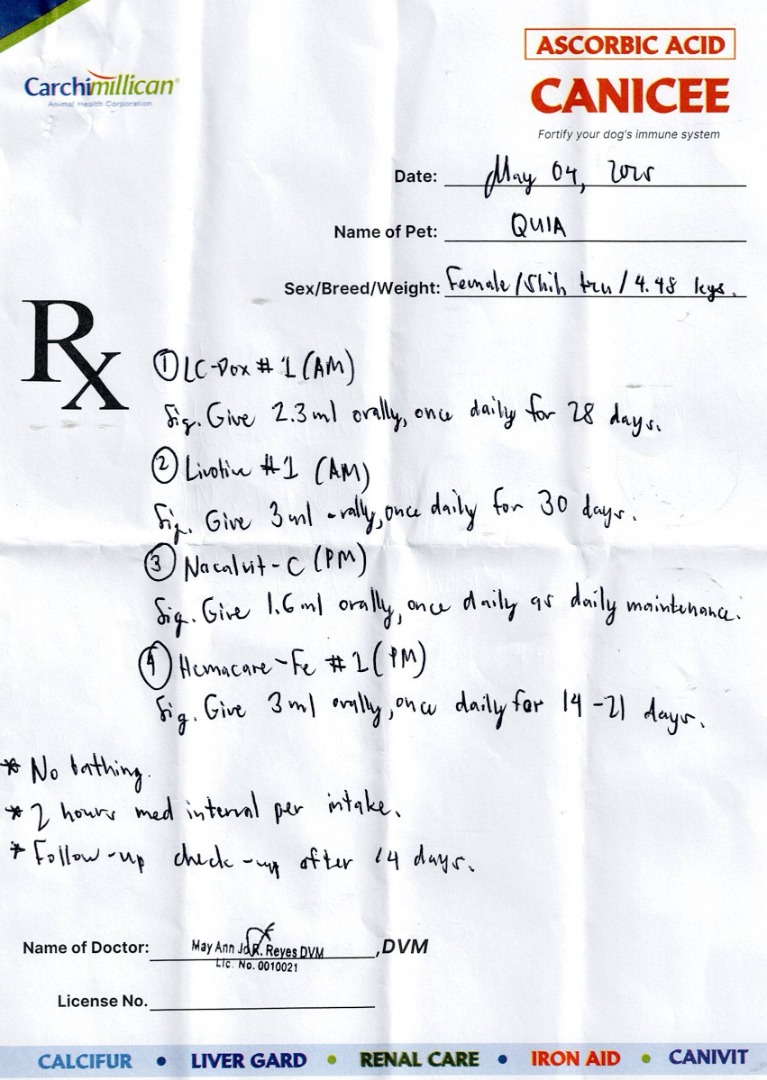 Carchimillican®
Animal Health Corporation
ASCORBIC ACID
CANICEE
Fortify your dog's immune system
Date: May 04, 2025
Name of Pet: QUIA
Sex/Breed/Weight: Female / Shih tzu / 4.48 kgs.
Rx
① LC-Dox # 1 (AM)
Sig. Give 2.3 ml orally, once daily for 28 days.
② Livotine #1 (AM)
Sig. Give 3 ml orally, once daily for 30 days.
③ Nacalvit-C (PM)
Sig. Give 1.6 ml orally, once daily as daily maintenance.
④ Hemacare-Fe # 1 (PM)
Sig. Give 3 ml orally, once daily for 14-21 days.
* No bathing.
* 2 hours med interval per intake.
* Follow-up check-up after 14 days.
Name of Doctor: May Ann R. Reyes DVM ,DVM
Lic. No. 0010021
License No.
CALCIFUR • LIVER GARD • RENAL CARE • IRON AID • CANIVIT